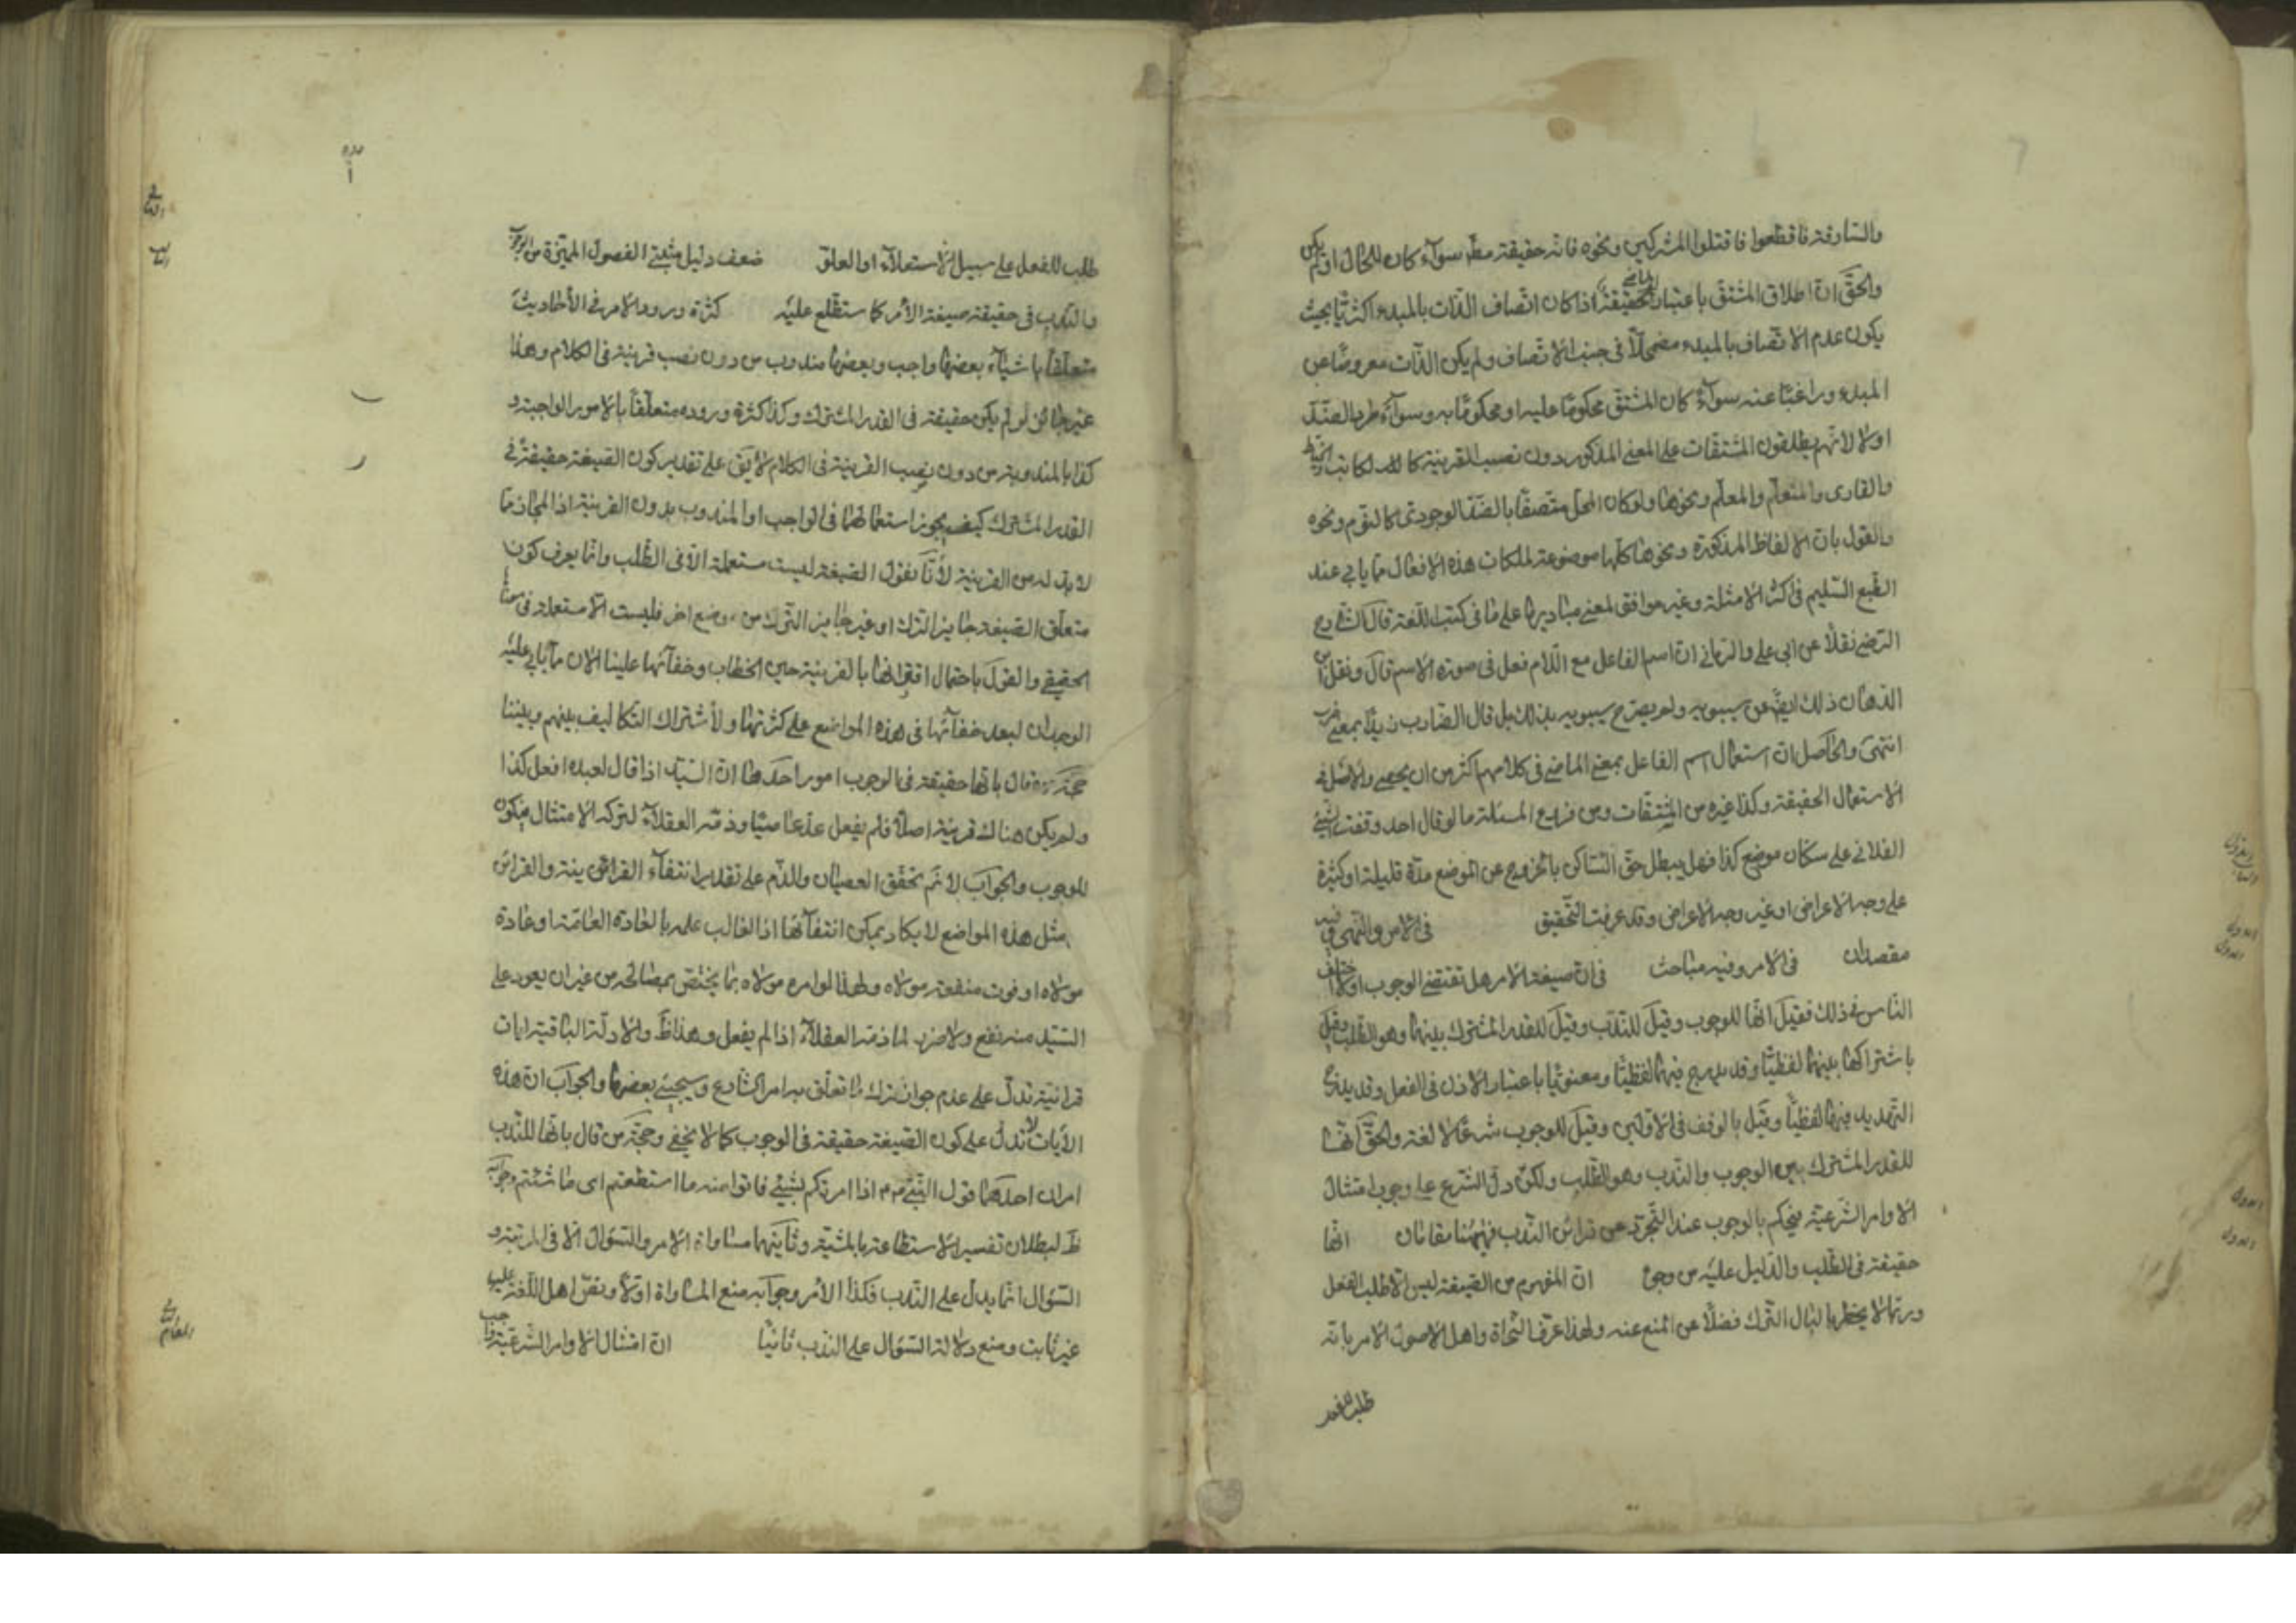 والسارقة فاقطعوا فاقتلوا المشركين ونحوه فانه حقيقة مط سوآء كان للحال او لم يكن
والحقّ انّ اطلاق المشتق باعتبار الماضي حقيقة اذا كان اتّصاف الذّات بالمبدء اكثريّا بحيث
يكون عدم الاتّصاف بالمبدء مضمحلّا فى جنب الاتّصاف ولم يكن الذّات معروضًا عن
المبدء وراغبًا عنه سوآءٌ كان المشتق محكومًا عليه او محكومًا به وسوآء طرء الضدّ
اولا لانّهم يطلقون المشتقات على المعنى المذكور دون نصب القرينة كالكاتب والخياط
والقارى والمتعلّم والمعلّم ونحوها ولو كان المحل متصفًا بالضدّ الوجودى كالنوم ونحوه
والقول بانّ الالفاظ المذكورة ونحوها كلّها موضوعة لملكات هذه الافعال ممّا يابى عند
الطّبع السّليم فى اكثر الامثلة وغير موافق لمعنى مباديها على ما فى كتب اللّغة قال الشّارح
الرّضى نقلًا عن ابى على والرّمانى انّ اسم الفاعل مع اللّام فعل فى صورة الاسم قال ونقل ابن
الدّهان ذلك ايضًا عن سيبويه ولم يصرّح سيبويه بذلك بل قال الضّارب زيدًا بمعنى ضرب
انتهى والحاصل انّ استعمال اسم الفاعل بمعنى الماضى فى كلامهم اكثر من ان يحصى والاصل فى
الاستعمال الحقيقة وكذا غيره من المشتقات ومن فروع المسئلة ما لو قال احد وقفت الشّيئ
الفلانى على سكّان موضع كذا فهل يبطل حقّ السّاكن بالخروج عن الموضع مدّة قليلة او كثيرة
على وجه الاعراض او غير وجه الاعراض وقد عرفت التّحقيق فى الامر والنّهى وفيه
مقصدان فى الامر وفيه مباحث فى انّ صيغة الامر هل تقتضى الوجوب او لا اختلف
النّاس فى ذلك فقيل انّها للوجوب وقيل للنّدب وقيل للقدر المشترك بينهما وهو الطّلب وقيل
باشتراكها بينهما لفظيّا وقد يدرج فيهما لفظيّا ومعنويّا باعتبار الاذن فى الفعل وقد يدرج
التّهديد فيهما لفظيًّا وقيل بالوقف فى الاوّلين وقيل للوجوب شرعًا لا لغة والحقّ انّها
للقدر المشترك بين الوجوب والنّدب وهو الطّلب ولكن دلّ الشّرع على وجوب امتثال
الاوامر الشّرعيّة فيحكم بالوجوب عند التّجرّد عن قرائن النّدب فههنا مقامان انّها
حقيقة فى الطّلب والدّليل عليه من وجوه انّ المفهوم من الصّيغة ليس الّا طلب الفعل
وربّما لا يخطر بالبال التّرك فضلًا عن المنع عنه ولهذا عرّف النّحاة واهل الاصول الامر بانّه
طلب للفعل
طلب للفعل على سبيل الاستعلآء او العلوّ ضعف دليل مثبتى الفصول المميّزة من الوجوب
والنّدب فى حقيقة صيغة الأمر كما ستطّلع عليه كثرة ورود الامر فى الأحاديث
متعلّقًا باشيآء بعضها واجب وبعضها مندوب من دون نصب قرينة فى الكلام وهذا
غير جائز لو لم يكن حقيقة فى القدر المشترك وكذا كثرة وروده متعلّقًا بالامور الواجبة و
كذا بالمندوبة من دون نصب القرينة فى الكلام لا يق على تقدير كون الصّيغة حقيقة فى
القدر المشترك كيف يجوز استعمالها فى الواجب او المندوب بدون القرينة اذ المجاز ممّا
لا بدّ له من القرينة لأنّا نقول الصّيغة ليست مستعملة الّا فى الطّلب وانّما يعرف كون
متعلّق الصّيغة جايز الترك او غير جايز التّرك من موضع اخر فليست الّا مستعملة فى معناها
الحقيقى والقول باحتمال اقترانها بالقرينة حين الخطاب وخفآئها علينا الان ممّا يابى عليه
الوجدان لبعد خفآئها فى هذه المواضع على كثرتها ولأشتراك التّكاليف بينهم وبيننا
حجّة من قال بانّها حقيقة فى الوجوب امور احدها انّ السّيّد اذا قال لعبده افعل كذا
ولم يكن هناك قرينة اصلًا فلم يفعل عدّ عاصيًا وذمّه العقلآء لتركه الامتثال فيكون
للوجوب والجواب لا نم تحقّق العصيان والذّم على تقدير انتفآء القرائن والقرائن
مثل هذه المواضع لا يكاد يمكن انتفآئها اذ الغالب علمه بالعادة العامّة او عادة
مولاه او فوت منفعة مولاه ولهذا لو امره مولاه بما يختصّ بمصالحه من غير ان يعود على
السّيّد منه نفع ولا ضرر لما ذمّه العقلآء اذا لم يفعل وهذا ظ والادلّة الباقية ايات
قرانيّة تدلّ على عدم جواز ترك ما تعلّق به امر الشّارع وسيجيئ بعضها والجواب انّ هذه
الأيات لا تدلّ على كون الصّيغة حقيقة فى الوجوب كما لا يخفى وحجّة من قال بانّها للنّدب
امران احدهما قول النّبىّ ص اذا امرتكم بشيئ فاتوا منه ما استطعتم اى ما شئتم وجوابه
ظ لبطلان تفسير الاستطاعة بالمشيّة وثانيهما مساواة الامر والسّؤال الّا فى الرتبة و
السّؤال انّما يدلّ على النّدب فكذا الأمر وجوابه منع المساواة اوّلًا ونصّ اهل اللّغة عليها
غير ثابت ومنع دلالة السّؤال على النّدب ثانيًا انّ امتثال الاوامر الشّرعيّة واجب